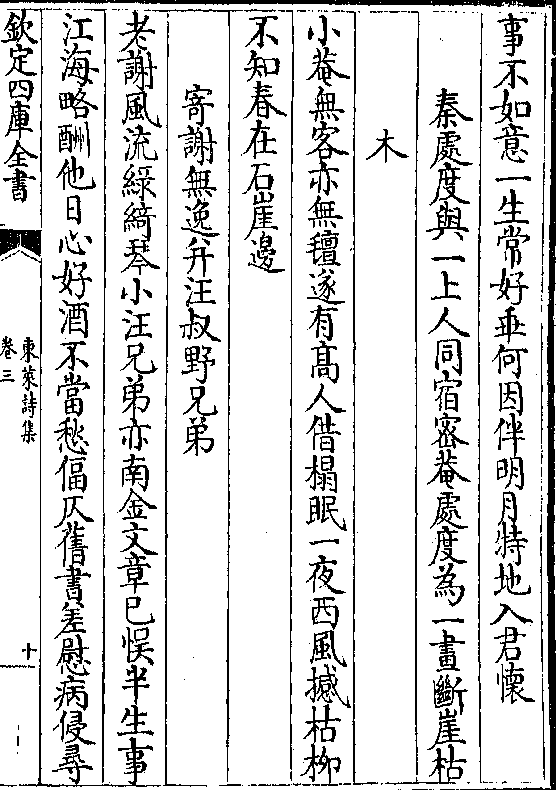 事不如意一生常好乖何因伴明月特地入君懷
秦處度與一上人同宿密菴處度為一畫斷崖枯
木
小菴無客亦無氊遂有髙人借榻眠一夜西風撼枯柳
不知春在石崖邊
寄謝無逸并汪叔野兄弟
老謝風流綠綺琴小汪兄弟亦南金文章已悮半生事
江海略酬他日心好酒不當愁偪仄舊書差慰病侵尋
欽定四庫全書
東萊詩集
卷三
十